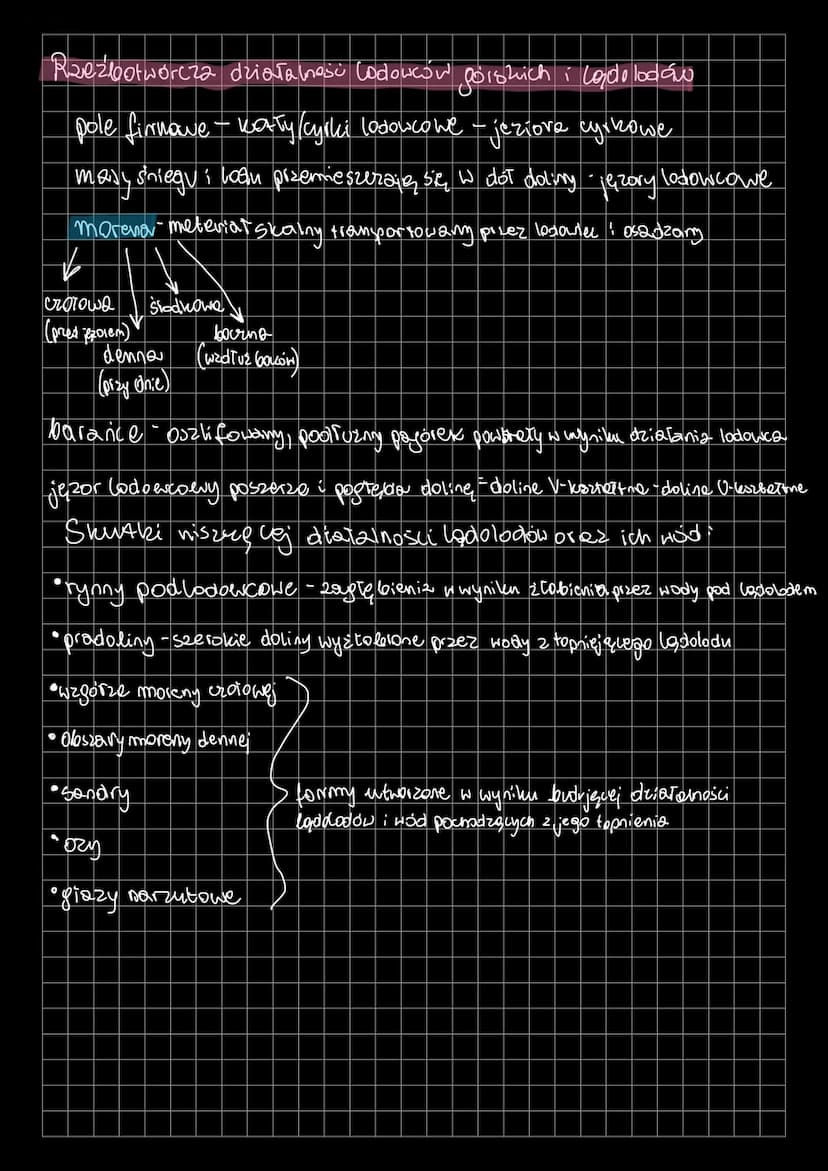 Rzeźbotwórcza działalność lodowców górskich i lądolodów
pole firnowe - kotły/cyrki lodowcowe - jeziora cyrkowe
masy śniegu i lodu przemieszczają się w dół doliny - jęzory lodowcowe
morena - materiał skalny transportowany przez lodowiec i osadzany
czołowa
środkowa
(przed jęzorem)
boczna
denna
(wzdłuż boków)
(przy dnie)
barańce - oszlifowany, podłużny pagórek powstały w wyniku działania lodowca
jęzor lodowcowy poszerza i pogłębia dolinę = dolina V-kształtna - dolina U-kształtna
Skutki niszczącej działalności lądolodów oraz ich wód:
• rynny podlodowcowe - zagłębienia w wyniku żłobienia przez wody pod lądolodem
• pradoliny - szerokie doliny wyżłobione przez wody z topniejącego lądolodu
• wzgórza moreny czołowej
• Obszary moreny dennej
• sandry
formy utworzone w wyniku budującej działalności
lądolodów i wód pochodzących z jego topnienia
• ozy
• głazy narzutowe